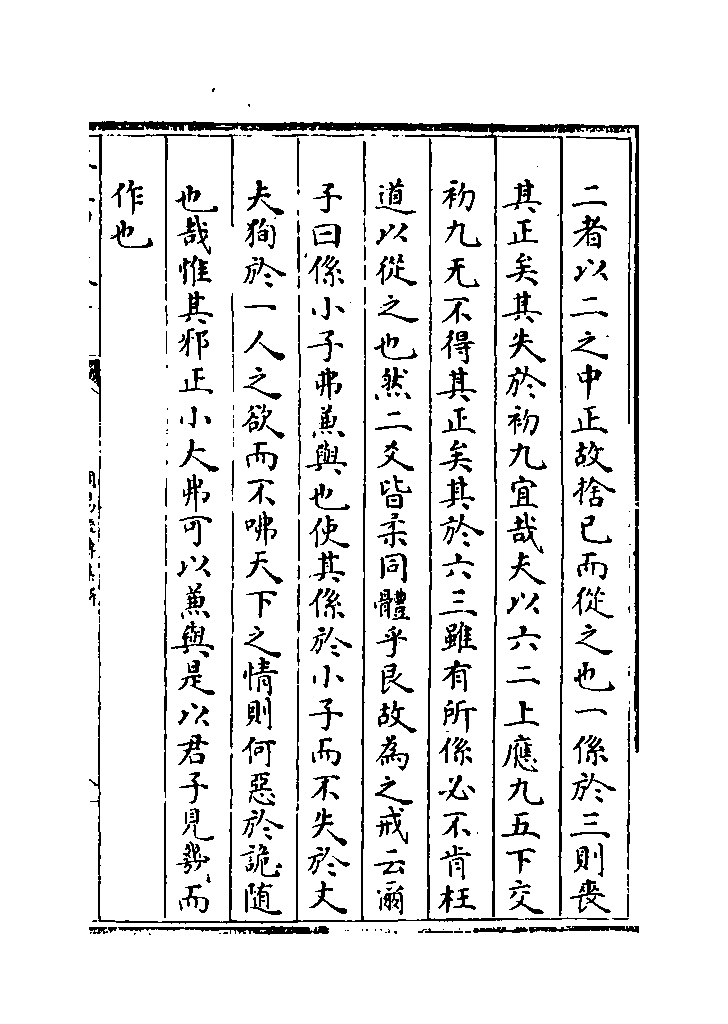 二者以二之中正故捨已而從之也一係於三則喪
其正矣其失於初九宜哉夫以六二上應九五下交
初九无不得其正矣其於六三雖有所係必不肯枉
道以從之也然二爻皆柔同體乎艮故為之戒云爾
子曰係小子弗兼與也使其係於小子而不失於丈
夫狥於一人之欲而不咈天下之情則何惡於詭随
也哉惟其邪正小大弗可以兼與是以君子見幾而
作也